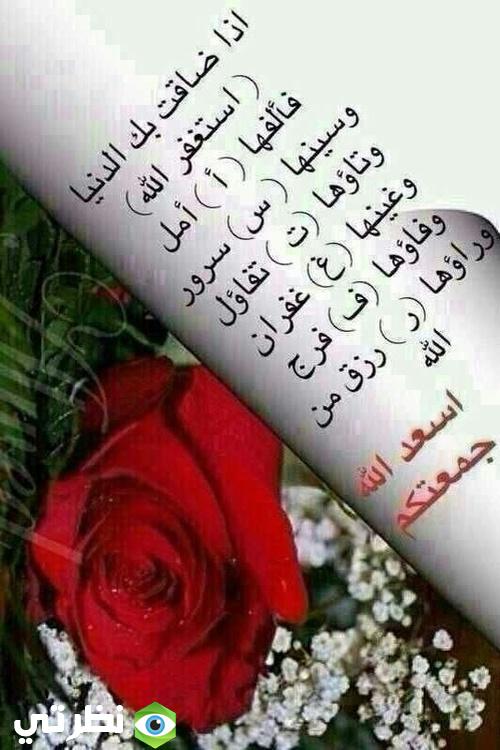 اذا ضاقت بك الدنيا
( استغفر الله)
فألفها ( أ ) أمل
وسينها ( س ) سرور
وتاؤها ( ت ) تفاؤل
وغينها ( غ ) غفران
وفاؤها ( ف ) فرج
وراؤها ( ر ) رزق من
الله
اسعد الله
جمعتكم
نظرتي